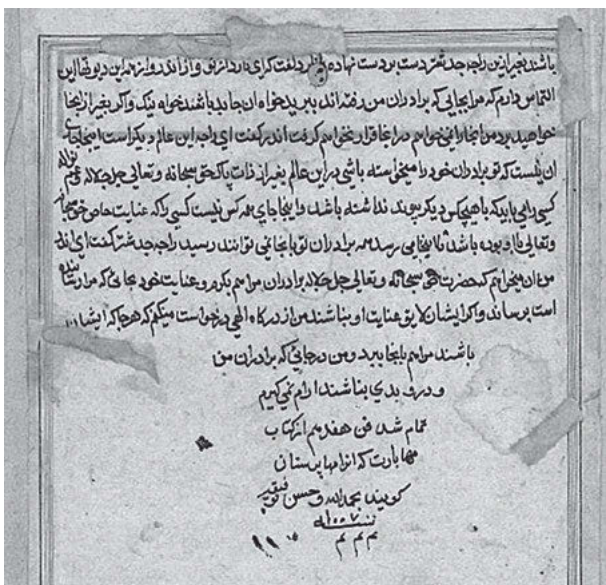 باشند بغیر ازین راجه جدشتر دست بر دست نهاده و گفت که ای اندر و از همه این دیوتها این
التماس دارم که مرا بجایی که برادران من رفته اند ببرید خواه ان جا بد باشند خواه نیک و اگر بغیر از انجا
خواهید برد من انجا را نمی خواهم مرا انجا قرار نخواهم گرفت اندر گفت ای راجه این عالم دیگر است اینجا جای
ان نیست که تو برادران خود را میخواسته باشی در این عالم بغیر از ذات پاک حق سبحانه و تعالی جل جلاله و عم نواله
کسی را می باید که با هیچکس دیگر پیوند نداشته باشد و اینجا جای همه کس نیست کسی را که عنایت خاص حق سبحانه
و تعالی با او بوده باشد تا اینجا می رسد همه برادران تو باینجا نمی توانند رسید راجه جدشتر گفت ای اندر
من ان میخواهم که حضرت حق سبحانه و تعالی جل جلاله برادران مرا هم بکرم و عنایت خود بجائی که مرا رسانیده
است برساند و اگر ایشان لایق عنایت او نباشند من از درگاه الهی درخواست میکنم که هر جا که ایشان
باشند مرا هم بانجا ببرد و من در جایی که برادران من
و دروپدی نباشند ارام نمی گیرم
تمام شد فن هفدهم از کتاب
مهابارت که انرا مهاپرستان
گویند بحمد الله و حسن توفیقه
سنه ۱۰۰۷
م م م